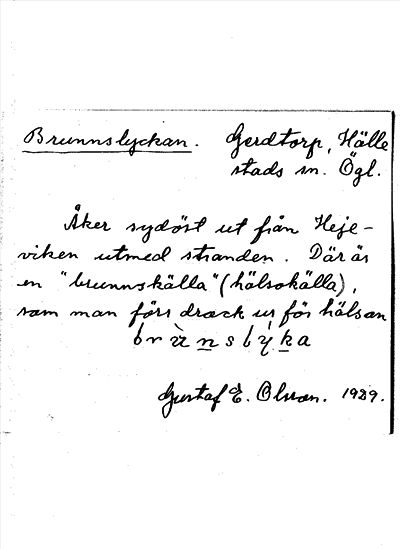 Brunnslyckan. Gerdtorp, Hälle
stads sn. Ögl.
Åker sydöst ut från Heje-
viken utmed stranden. Där är
en "brunnskälla" (hälsokälla),
som man förr drack ur för hälsan
Gustaf E. Olsson. 1929.